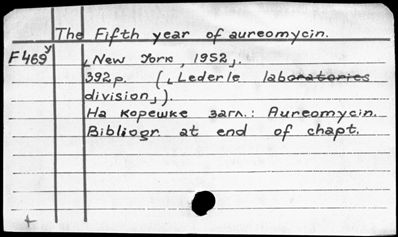 The Fifth year of aureomycin.
F469y
⌊New York, 1952⌋.
392p. (⌊Lederle laboratories
division⌋).
На корешке загл.: Aureomycin.
Bibliogr at end of chapt.
+